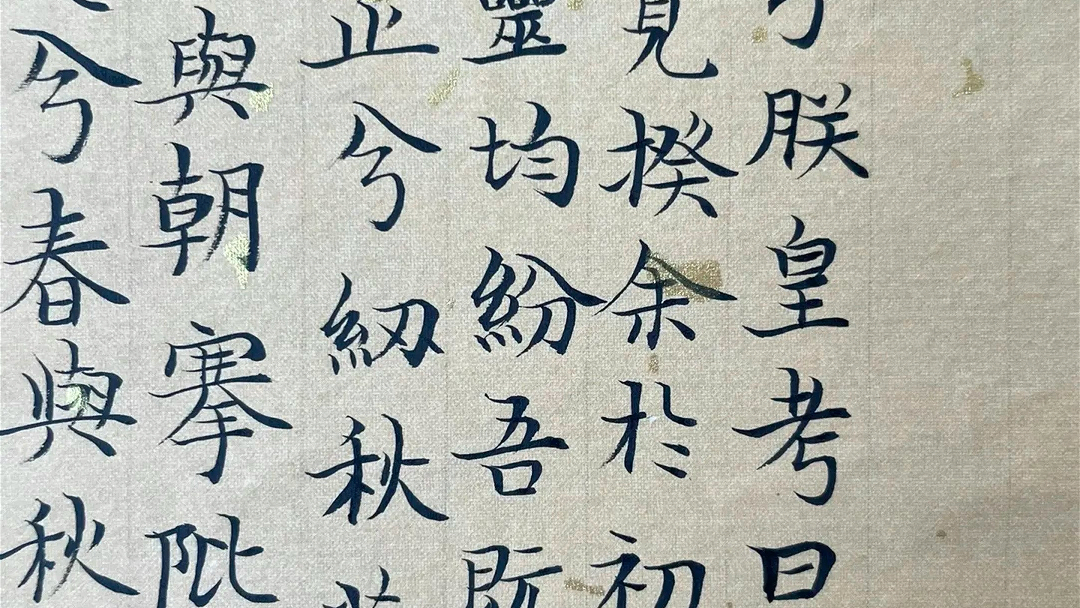 朕皇考曰
揆余於初
靈均紛吾既
兮紉秋
與朝搴阰
兮春與秋